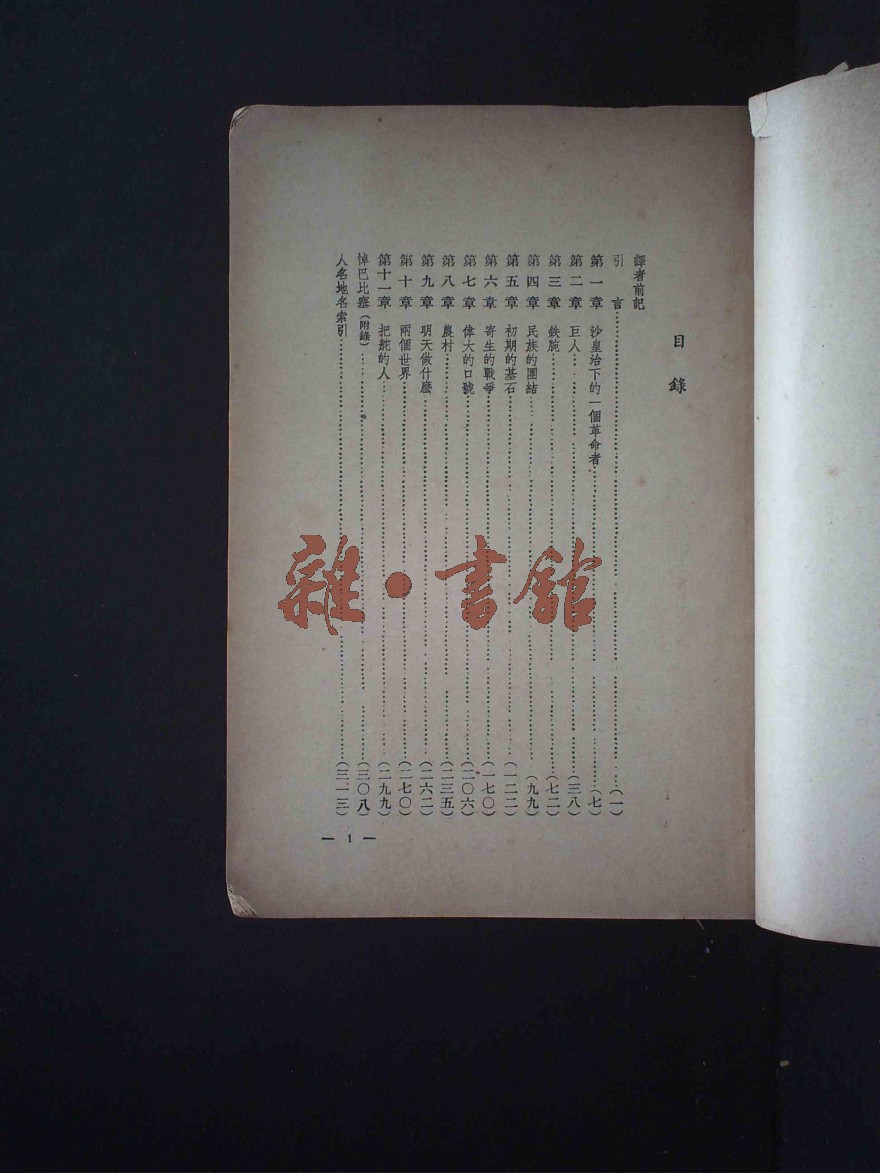 目錄
譯者前記
引言(一)
第一章 沙皇治下的一個革命者(七)
第二章 巨人(三八)
第三章 鉄腕(七二)
第四章 民族的團結(九九)
第五章 初期的基石(一二二)
第六章 寄生的戰爭(一七〇)
第七章 偉大的口號(二〇六)
第八章 農村(二三五)
第九章 明天做什麼(二六二)
第十章 兩個世界(二七〇)
第十一章 把舵的人(二九九)
悼巴比塞(附錄)(三〇八)
人名地名索引(三一三)
— 1 —
雜·書館